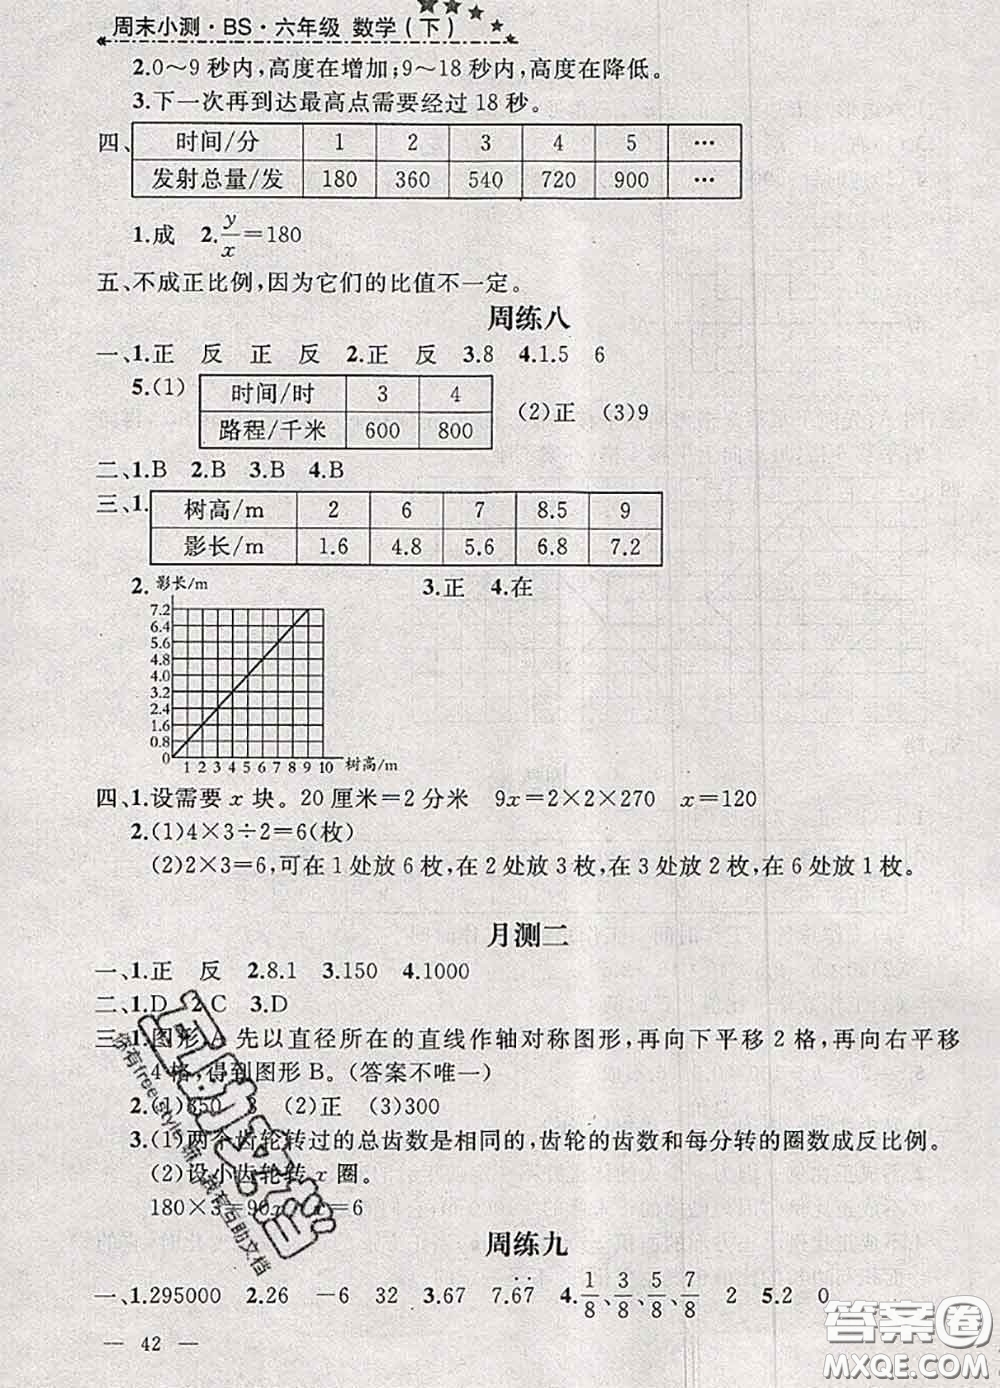 周末小测·BS·六年级 数学(下)
2.0～9秒内,高度在增加;9～18秒内,高度在降低。
3.下一次再到达最高点需要经过18秒。
四、 时间/分 1 2 3 4 5 …
发射总量/发 180 360 540 720 900 …
1.成 2.y/x=180
五、不成正比例,因为它们的比值不一定。
周练八
一、1.正 反 正 反 2.正 反 3.8 4.1.5 6
5.(1) 时间/时 3 4
路程/千米 600 800
(2)正 (3)9
二、1.B 2.B 3.B 4.B
三、1. 树高/m 2 6 7 8.5 9
影长/m 1.6 4.8 5.6 6.8 7.2
2. 影长/m 3.正 4.在
7.2
6.4
5.6
4.8
4.0
3.2
2.4
1.6
0.8
0 1 2 3 4 5 6 7 8 9 10 树高/m
四、1.设需要x块。20厘米=2分米 9x=2×2×270 x=120
2.(1)4×3÷2=6(枚)
(2)2×3=6,可在1处放6枚,在2处放3枚,在3处放2枚,在6处放1枚。
月测二
一、1.正 反 2.8.1 3.150 4.1000
二、1.D 2.C 3.D
三、1.图形A先以直径所在的直线作轴对称图形,再向下平移2格,再向右平移
4格,得到图形B。(答案不唯一)
2.(1)350 3 (2)正 (3)300
3.(1)两个齿轮转过的总齿数是相同的,齿轮的齿数和每分转的圈数成反比例。
(2)设小齿轮转x圈。
180×3=90x x=6
周练九
一、1.295000 2.26 －6 32 3.67 7.6̇7̇ 4.1/8、3/8、5/8、7/8 2 5.2 0
— 42 —
答案圈
MXQE.COM